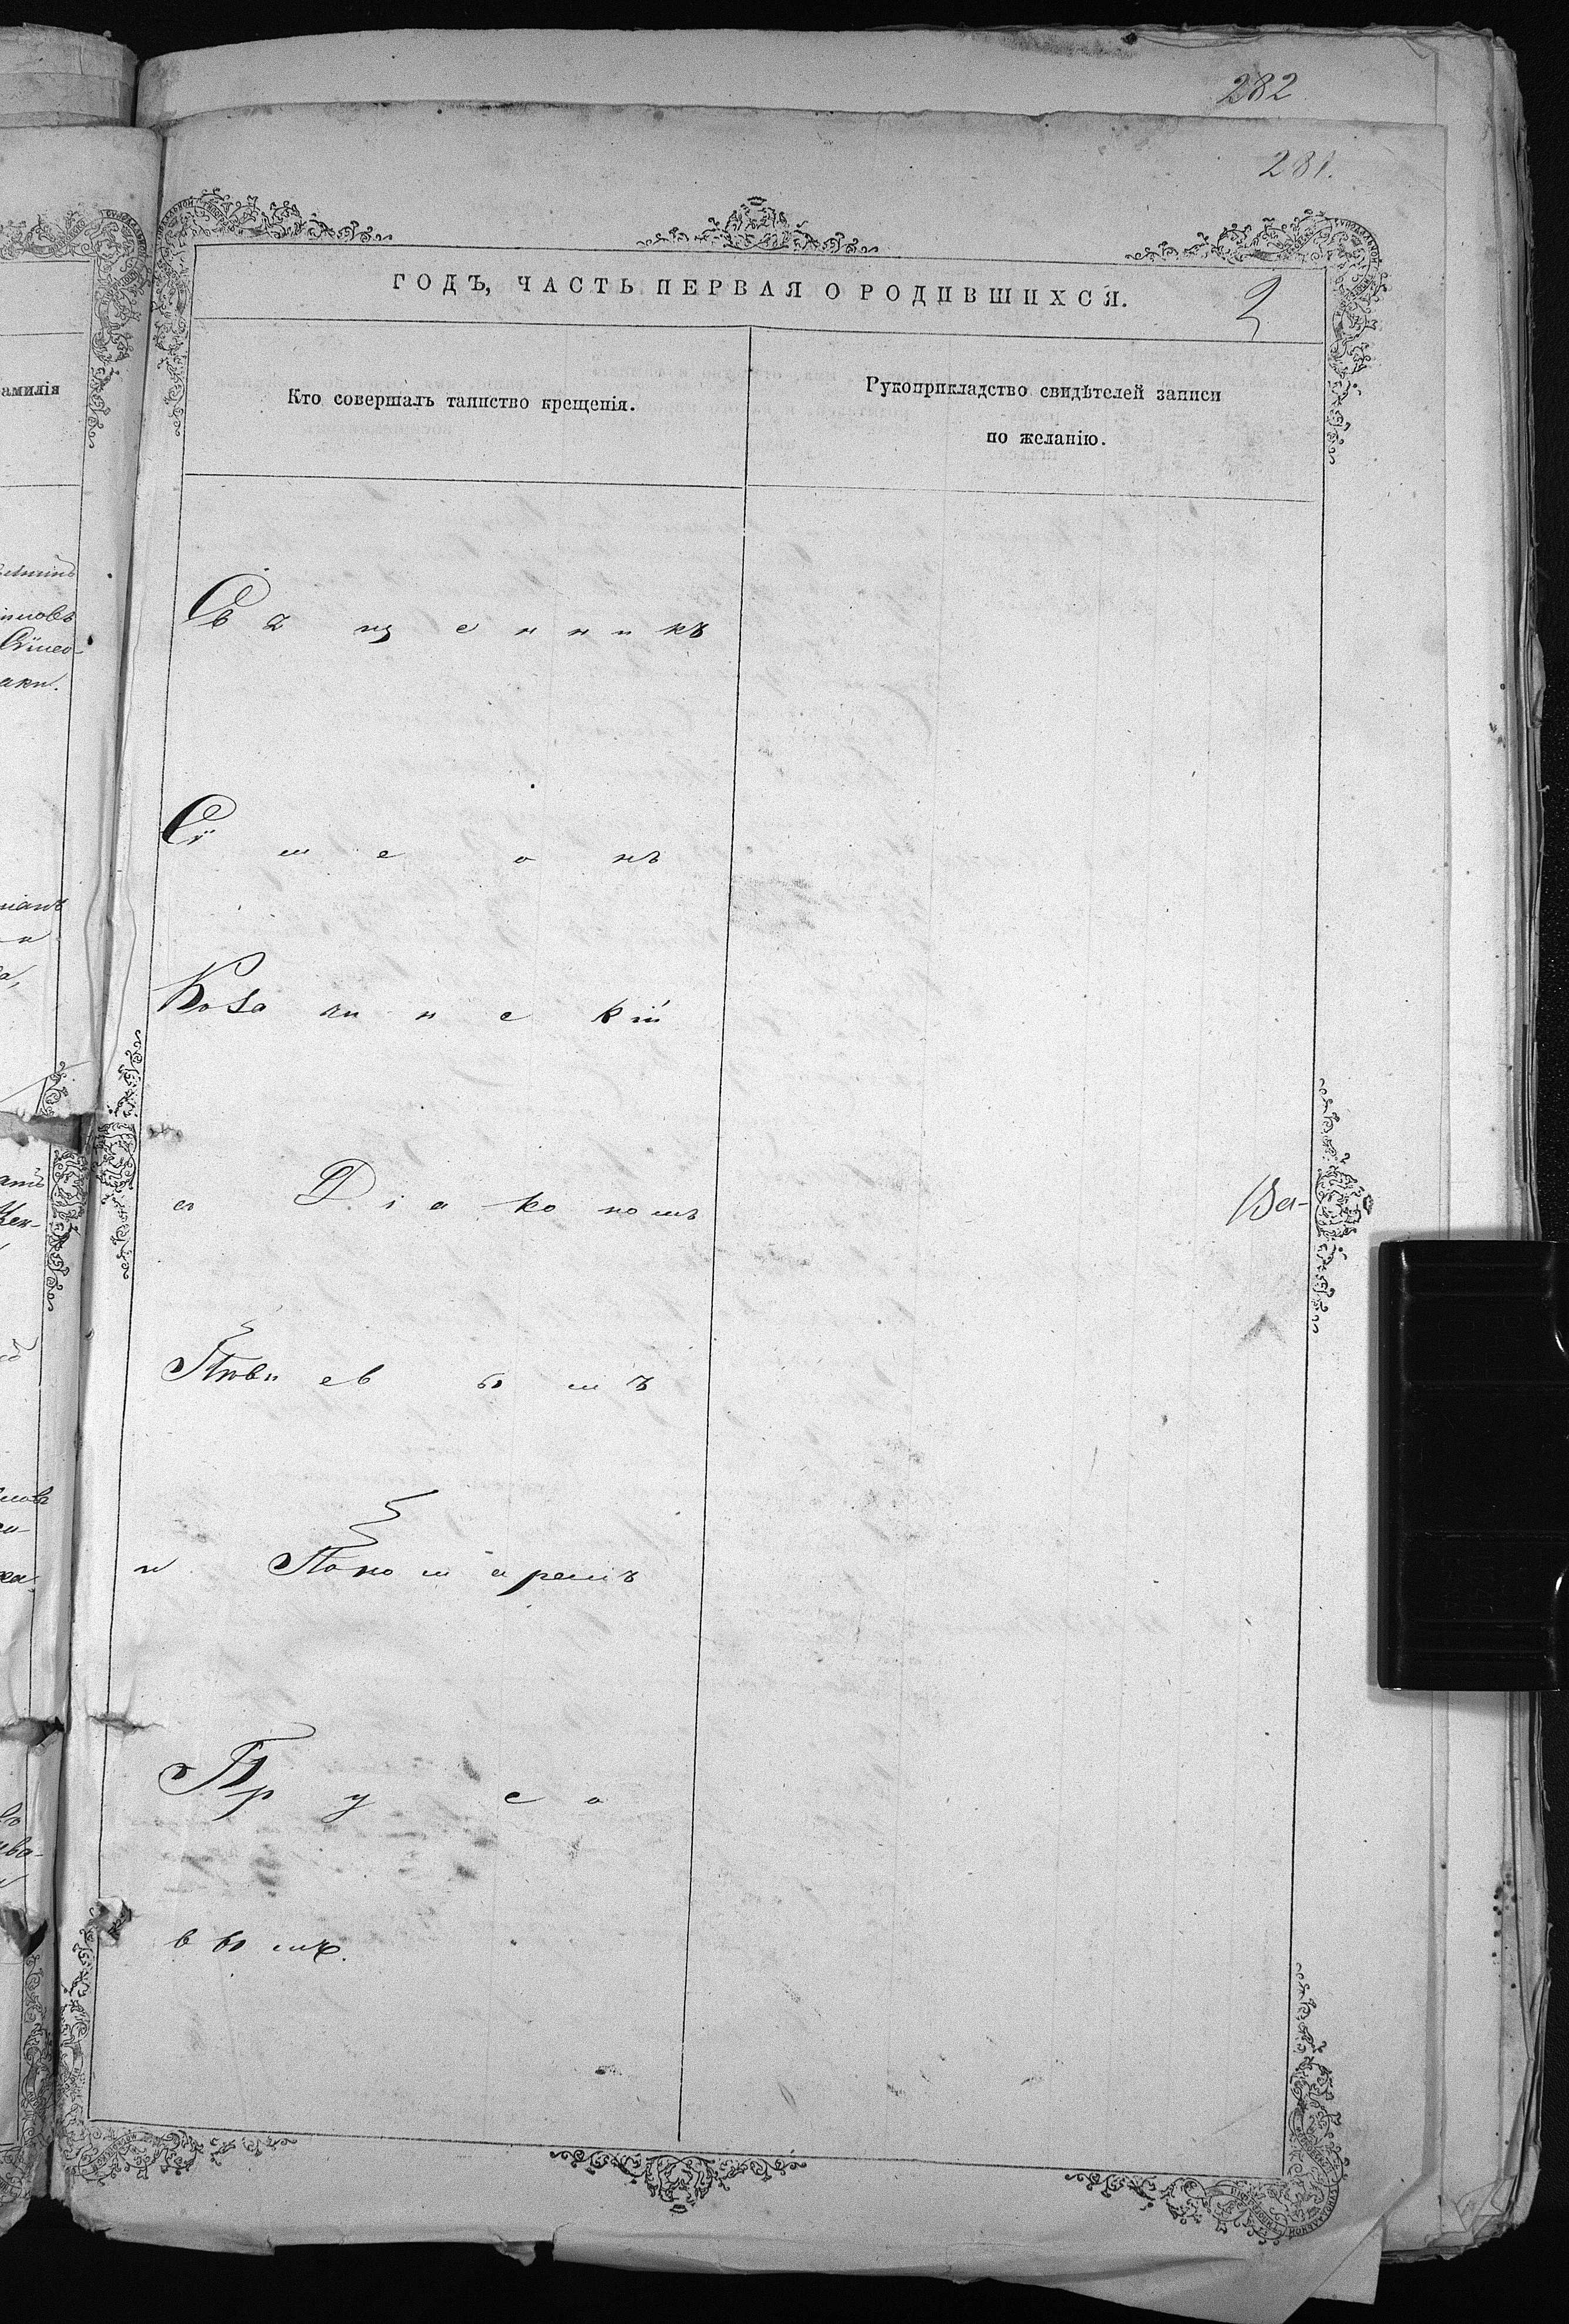 282
281.
ГОДЪ, ЧАСТЬ ПЕРВАЯ О РОДИВШИХСЯ.
2
амилія
Кто совершалъ таинство крещенія.
Рукоприкладство свидѣтелей записи
по желанію.
Священникъ
Сѵмеонъ
Козакинскій
съ Діакономъ
Ва-
Пивневымъ
и Пономаремъ
Прусо
вымъ.